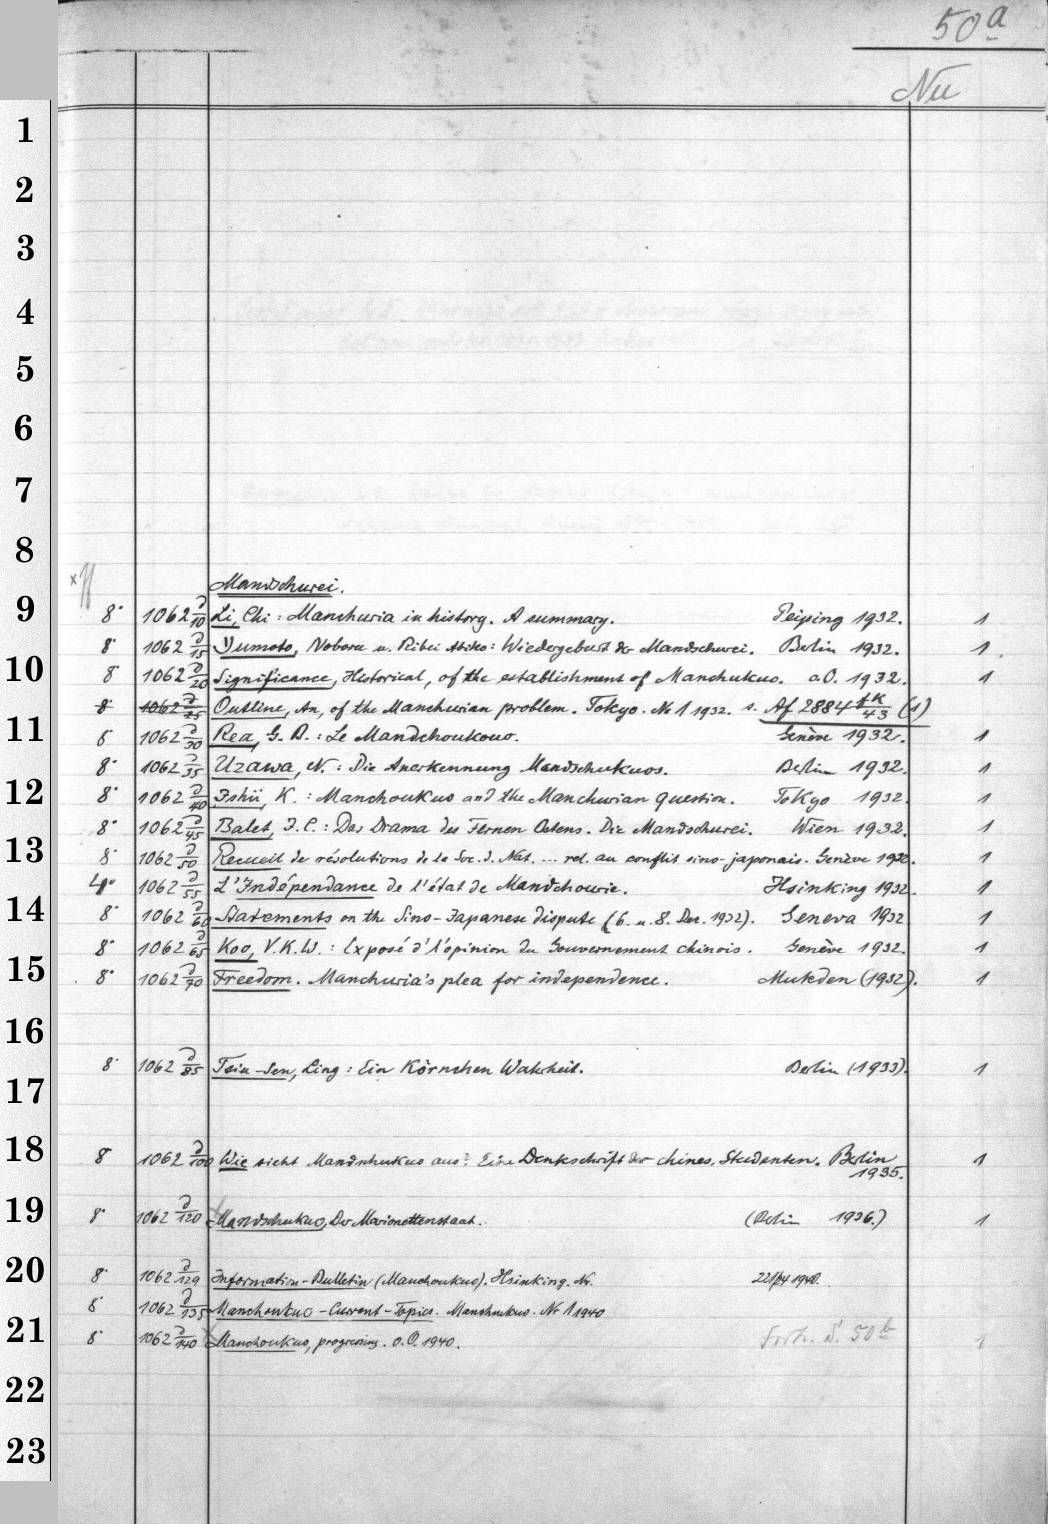 50a
Nu
1
2
3
4
5
6
7
8
Mandschurei.
9
8° 1062 d/10 Li, Chi: Manchuria in history. A summary. Peiping 1932. 1
8° 1062 d/15 Yumoto, Noboru u. Ribei Akiko: Wiedergeburt der Mandschurei. Berlin 1932. 1
10
8° 1062 d/20 Significance, Historical, of the establishment of Manchukuo. o.O. 1932. 1
8° 1062 d/25 Outline, An, of the Manchurian problem. Tokyo. No 1 1932. s. Af 2884 fk/43 (1)
11
8° 1062 d/30 Rea, G. B.: Le Mandchoukouo. Genève 1932. 1
8° 1062 d/35 Uzawa, N.: Die Anerkennung Mandschukuos. Berlin 1932. 1
12
8° 1062 d/40 Ishii, K.: Manchoukuo and the Manchurian question. Tokyo 1932. 1
8° 1062 d/45 Balet, J. C.: Das Drama des Fernen Ostens. Die Mandschurei. Wien 1932. 1
13
8° 1062 d/50 Recueil de résolutions de la Soc. d. Nat. ... rel. au conflit sino-japonais. Genève 1932. 1
4° 1062 d/55 L'Indépendance de l'état de Mandchourie. Hsinking 1932. 1
14
8° 1062 d/60 Statements on the Sino-Japanese dispute (6. u. 8. Dez. 1932). Geneva 1932 1
8° 1062 d/65 Koo, V.K.W.: Exposé d'l'opinion du Gouvernement chinois. Genève 1932. 1
15
8° 1062 d/70 Freedom. Manchuria's plea for independence. Mukden (1932). 1
16
8° 1062 d/85 Tsiu-Sen, Ling: Ein Körnchen Wahrheit. Berlin (1933). 1
17
18
8° 1062 d/100 Wie sieht Mandschukuo aus? Eine Denkschrift der chines. Studenten. Berlin 1935. 1
19
8° 1062 d/120 Mandschukuo, Der Marionettenstaat. (Berlin 1936.) 1
20
8° 1062 d/129 Information-Bulletin (Manchoukuo). Hsinking. Nr. 221/24 1940.
8° 1062 d/135 Manchoukuo-Current-Topics. Manchukuo. Nr 1 1940
21
8° 1062 d/140 Manchoukuo, progressing. o.O. 1940. Forts. S. 50b 1
22
23